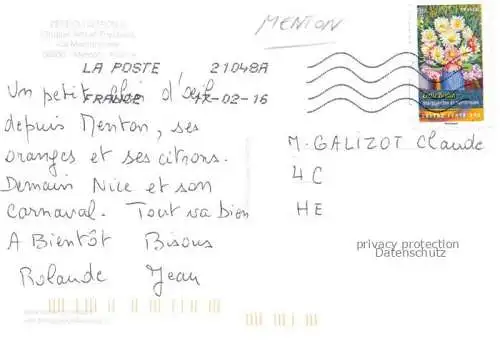 MENTON
LA POSTE 21048A
FRANCE 17-02-16
Un petit clin d'œil
depuis Menton, ses
oranges et ses citrons.
Demain Nice et son
Carnaval. Tout va bien
A Bientôt Bisous
Rolande Jean
FRANCE
M. GALIZOT Claude
4C
HE
privacy protection
Datenschutz